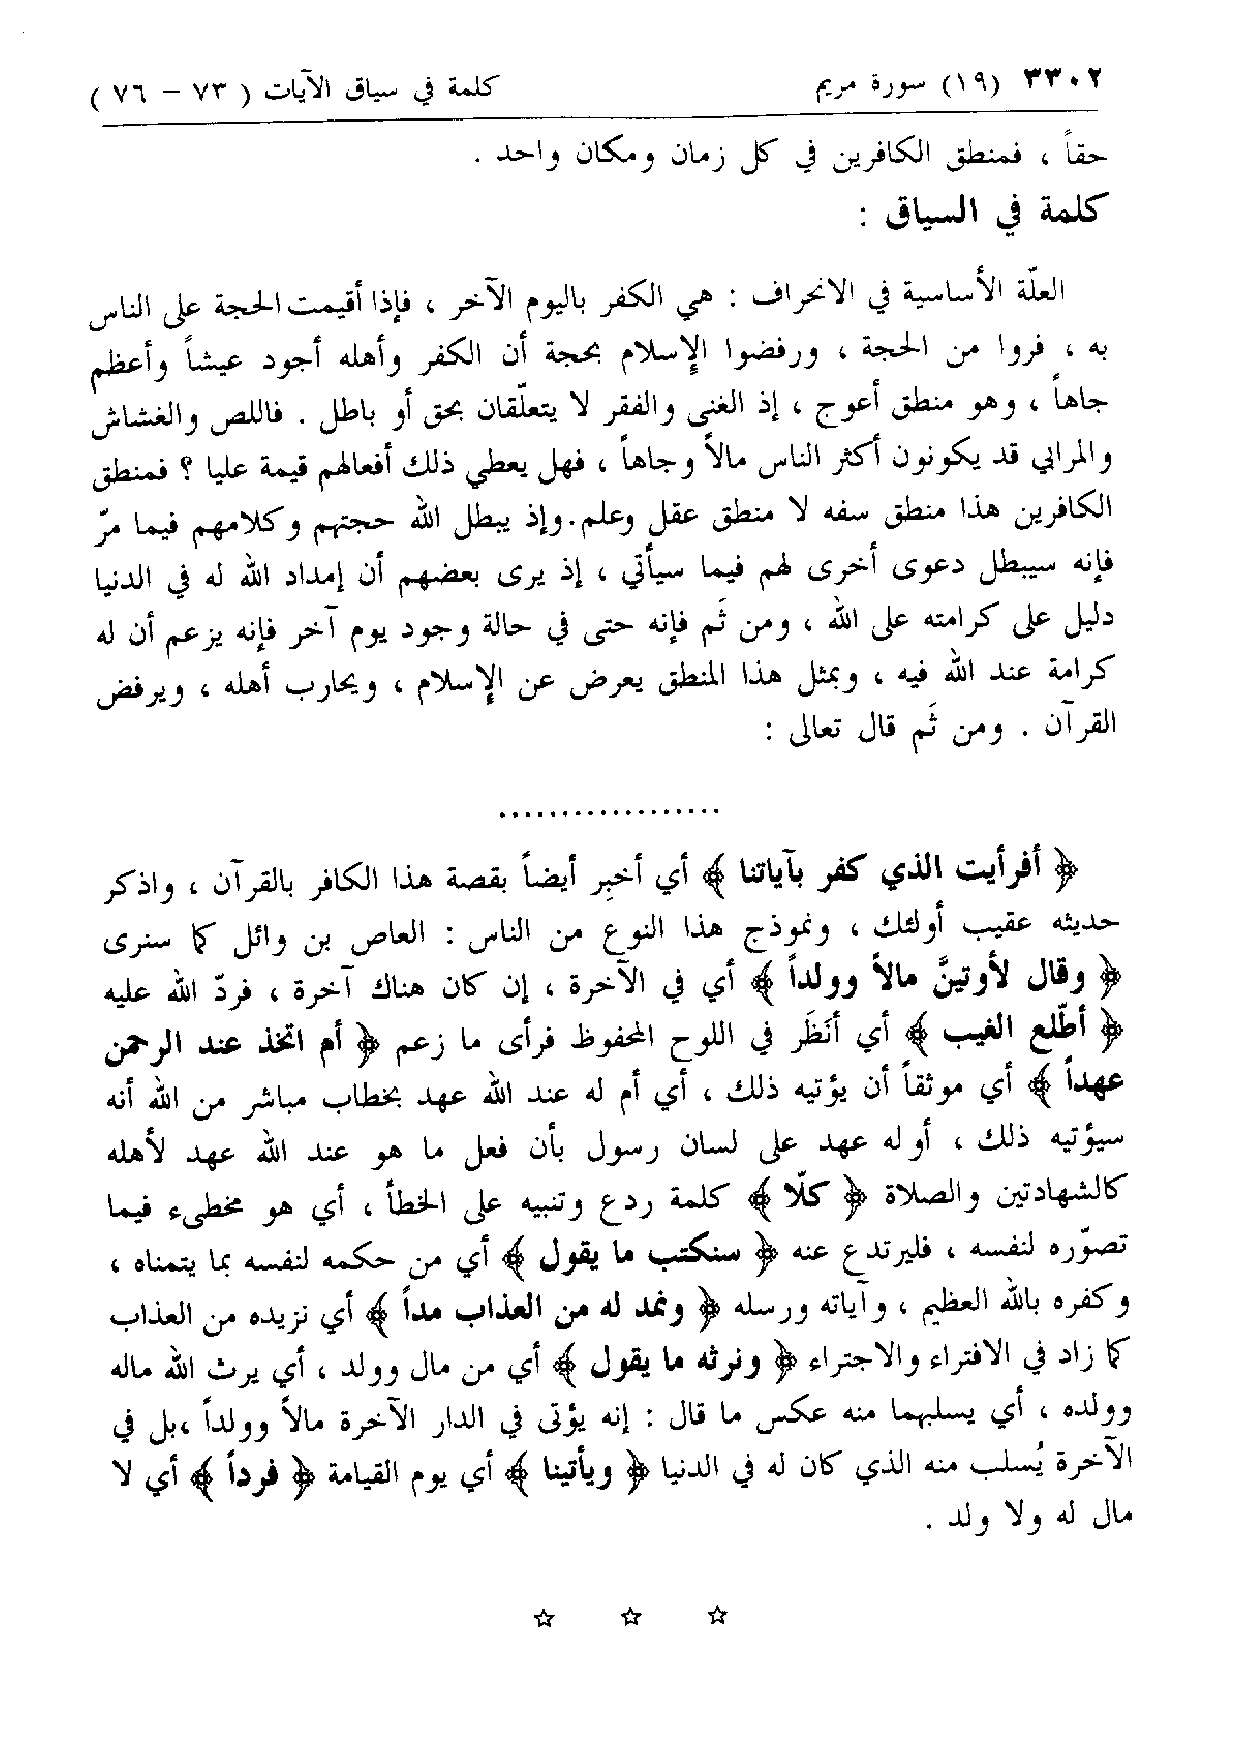 ٣٣٠٢ (١٩) سورة مريم كلمة في سياق الآيات ( ٧٣ – ٧٦ )
حقاً ، فمنطق الكافرين في كل زمان ومكان واحد .
كلمة في السياق :
العلّة الأساسية في الانحراف : هي الكفر باليوم الآخر ، فإذا أقيمت الحجة على الناس
به ، فروا من الحجة ، ورفضوا الإسلام بحجة أن الكفر وأهله أجود عيشاً وأعظم
جاهاً ، وهو منطق أعوج ، إذ الغنى والفقر لا يتعلّقان بحق أو باطل . فاللص والغشاش
والمرابي قد يكونون أكثر الناس مالاً وجاهاً ، فهل يعطي ذلك أفعالهم قيمة عليا ؟ فمنطق
الكافرين هذا منطق سفه لا منطق عقل وعلم . وإذ يبطل الله حجتهم وكلامهم فيما مرّ
فإنه سيبطل دعوى أخرى لهم فيما سيأتي ، إذ يرى بعضهم أن إمداد الله له في الدنيا
دليل على كرامته على الله ، ومن ثَم فإنه حتى في حالة وجود يوم آخر فإنه يزعم أن له
كرامة عند الله فيه ، وبمثل هذا المنطق يعرض عن الإسلام ، ويحارب أهله ، ويرفض
القرآن . ومن ثَم قال تعالى :
..................
﴿ أفرأيت الذي كفر بآياتنا ﴾ أي أخبِر أيضاً بقصة هذا الكافر بالقرآن ، واذكر
حديثه عقيب أولئك ، ونموذج هذا النوع من الناس : العاص بن وائل كما سنرى
﴿ وقال لأوتينَّ مالاً وولداً ﴾ أي في الآخرة ، إن كان هناك آخرة ، فردّ الله عليه
﴿ أطّلع الغيب ﴾ أي أنَظَر في اللوح المحفوظ فرأى ما زعم ﴿ أم اتخذ عند الرحمن
عهداً ﴾ أي موثقاً أن يؤتيه ذلك ، أي أم له عند الله عهد بخطاب مباشر من الله أنه
سيؤتيه ذلك ، أو له عهد على لسان رسول بأن فعل ما هو عند الله عهد لأهله
كالشهادتين والصلاة ﴿ كلّا ﴾ كلمة ردع وتنبيه على الخطأ ، أي هو مخطىء فيما
تصوّره لنفسه ، فليرتدع عنه ﴿ سنكتب ما يقول ﴾ أي من حكمه لنفسه بما يتمناه ،
وكفره بالله العظيم ، وآياته ورسله ﴿ ونمد له من العذاب مداً ﴾ أي نزيده من العذاب
كما زاد في الافتراء والاجتراء ﴿ ونرثه ما يقول ﴾ أي من مال وولد ، أي يرث الله ماله
وولده ، أي يسلبهما منه عكس ما قال : إنه يؤتى في الدار الآخرة مالاً وولداً ، بل في
الآخرة يُسلب منه الذي كان له في الدنيا ﴿ ويأتينا ﴾ أي يوم القيامة ﴿ فرداً ﴾ أي لا
مال له ولا ولد .
☆ ☆ ☆